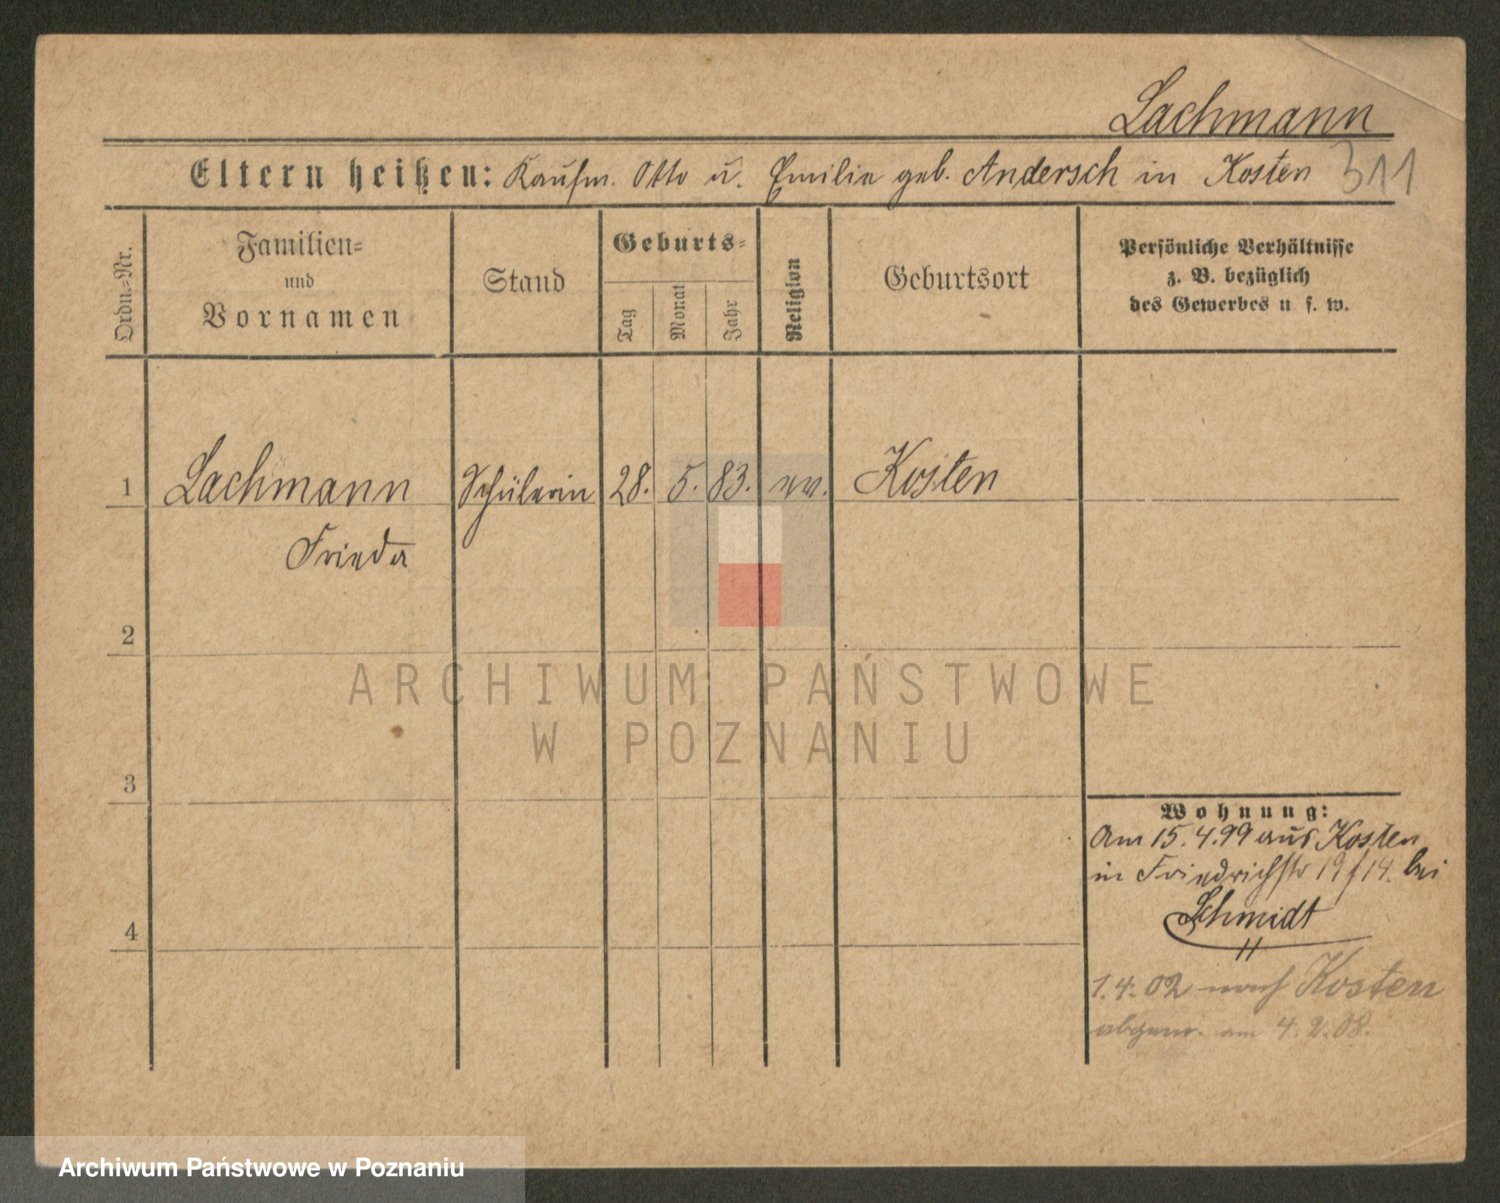 Lachmann
Eltern heißen: Kaufm. Otto u. Emilie geb. Andersch in Kosten 311
Ordn.-Nr.
Familien-
und
Vornamen
Stand
Geburts-
Tag
Monat
Jahr
Religion
Geburtsort
Persönliche Verhältnisse
z. B. bezüglich
des Gewerbes u. s. w.
1 Lachmann Schülerin 28. 5. 83. ev. Kosten
Frieda
2
3
4
Wohnung:
Am 15.4.99 aus Kosten
in Friedrichstr 19/14. bei
Schmidt
1.4.02 nach Kosten
abgem. am 4.2.08.
ARCHIWUM PAŃSTWOWE
W POZNANIU
Archiwum Państwowe w Poznaniu